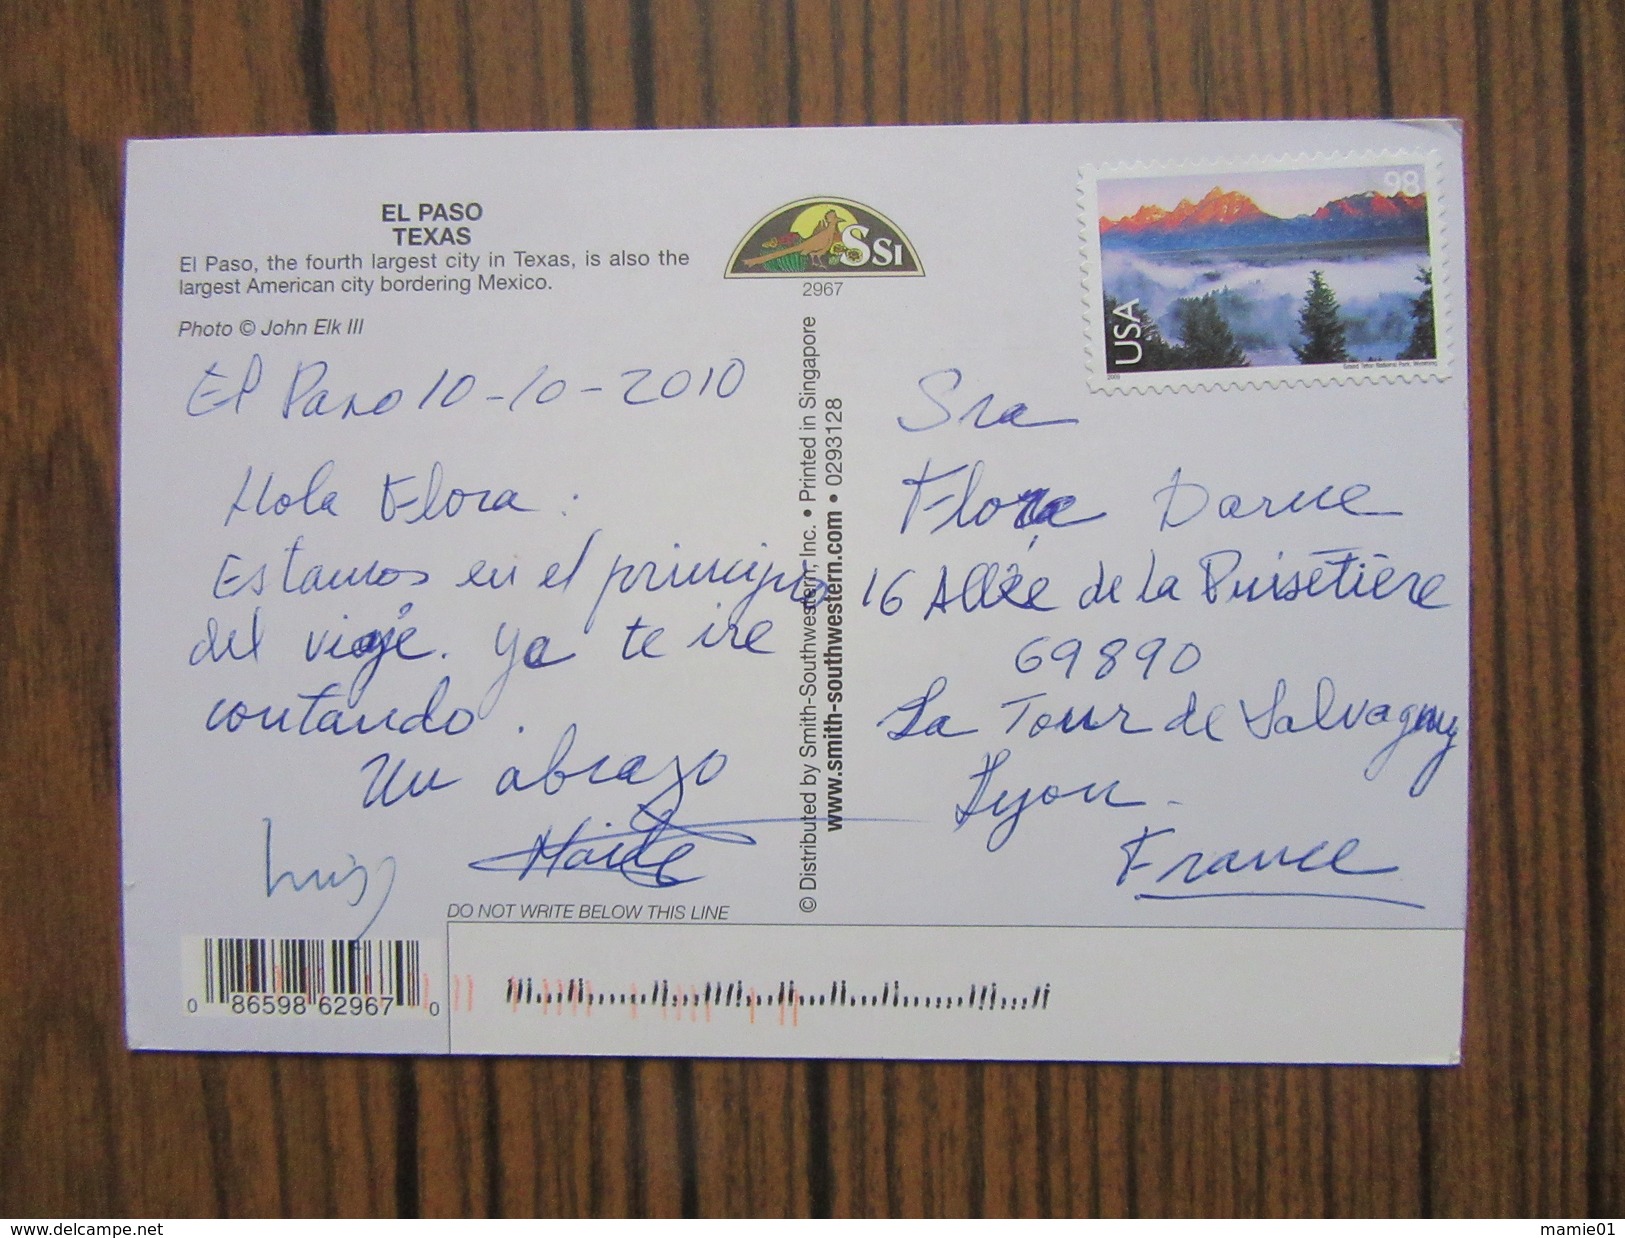 EL PASO
TEXAS
El Paso, the fourth largest city in Texas, is also the
largest American city bordering Mexico.
Photo © John Elk III
SSI
2967
El Paso 10-10-2010
Hola Flora:
Estamos en el principio
del viaje. ya te ire
contando.
Un abrazo
Luis
Maite
© Distributed by Smith-Southwestern, Inc. • Printed in Singapore
www.smith-southwestern.com • 0293128
98
USA
2009
Grand Teton National Park, Wyoming
Sra
Flora Darne
16 Allée de la Puisetière
69890
La Tour de Salvagny
Lyon.
France
DO NOT WRITE BELOW THIS LINE
0 86598 62967 0
www.delcampe.net
mamie01